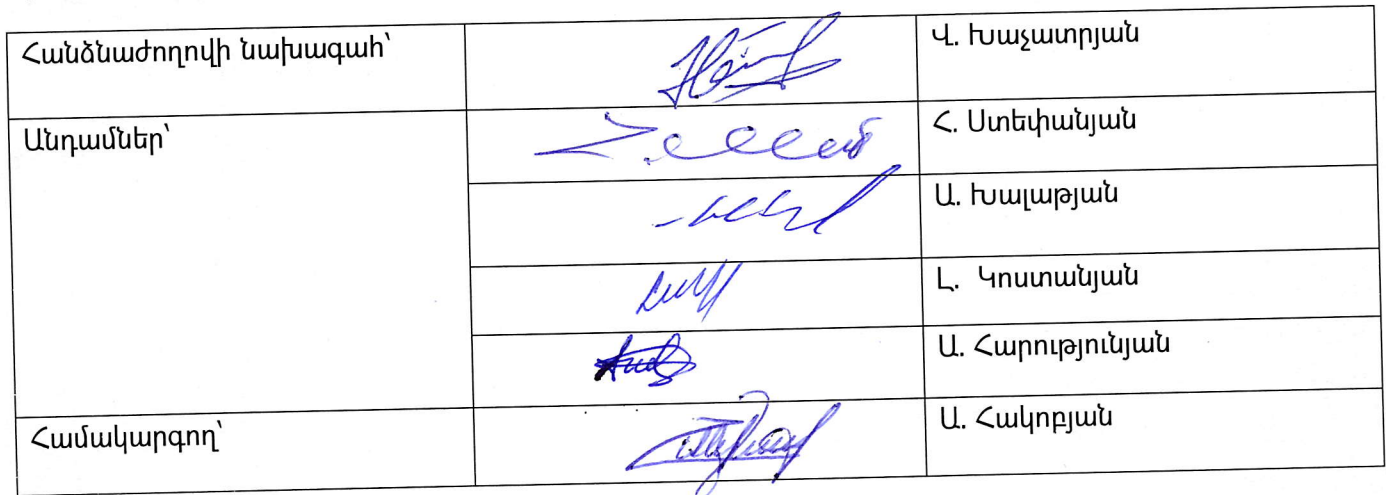 Հանձնաժողովի նախագահ՝ Վ. Խաչատրյան
Անդամներ՝ Հ. Ստեփանյան
Ա. Խալաթյան
Լ. Կոստանյան
Ա. Հարությունյան
Համակարգող՝ Ա. Հակոբյան